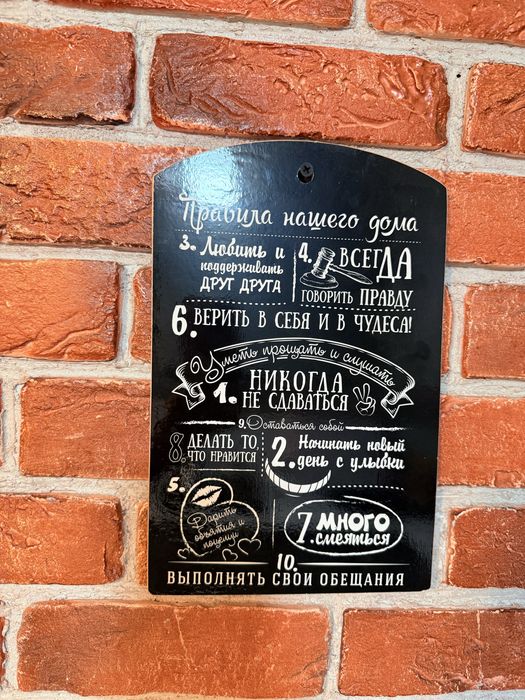 Правила нашего дома
3. Любить и
поддерживать
ДРУГ ДРУГА
4. ВСЕГДА
ГОВОРИТЬ ПРАВДУ
6. ВЕРИТЬ В СЕБЯ И В ЧУДЕСА!
Уметь прощать и слушать
1. НИКОГДА
НЕ СДАВАТЬСЯ
9. Оставаться собой
8. ДЕЛАТЬ ТО
ЧТО НРАВИТСЯ
2. Начинать новый
день с улыбки
5.
Дарить
объятия и
поцелуи
7. МНОГО
смеяться
10.
ВЫПОЛНЯТЬ СВОИ ОБЕЩАНИЯ